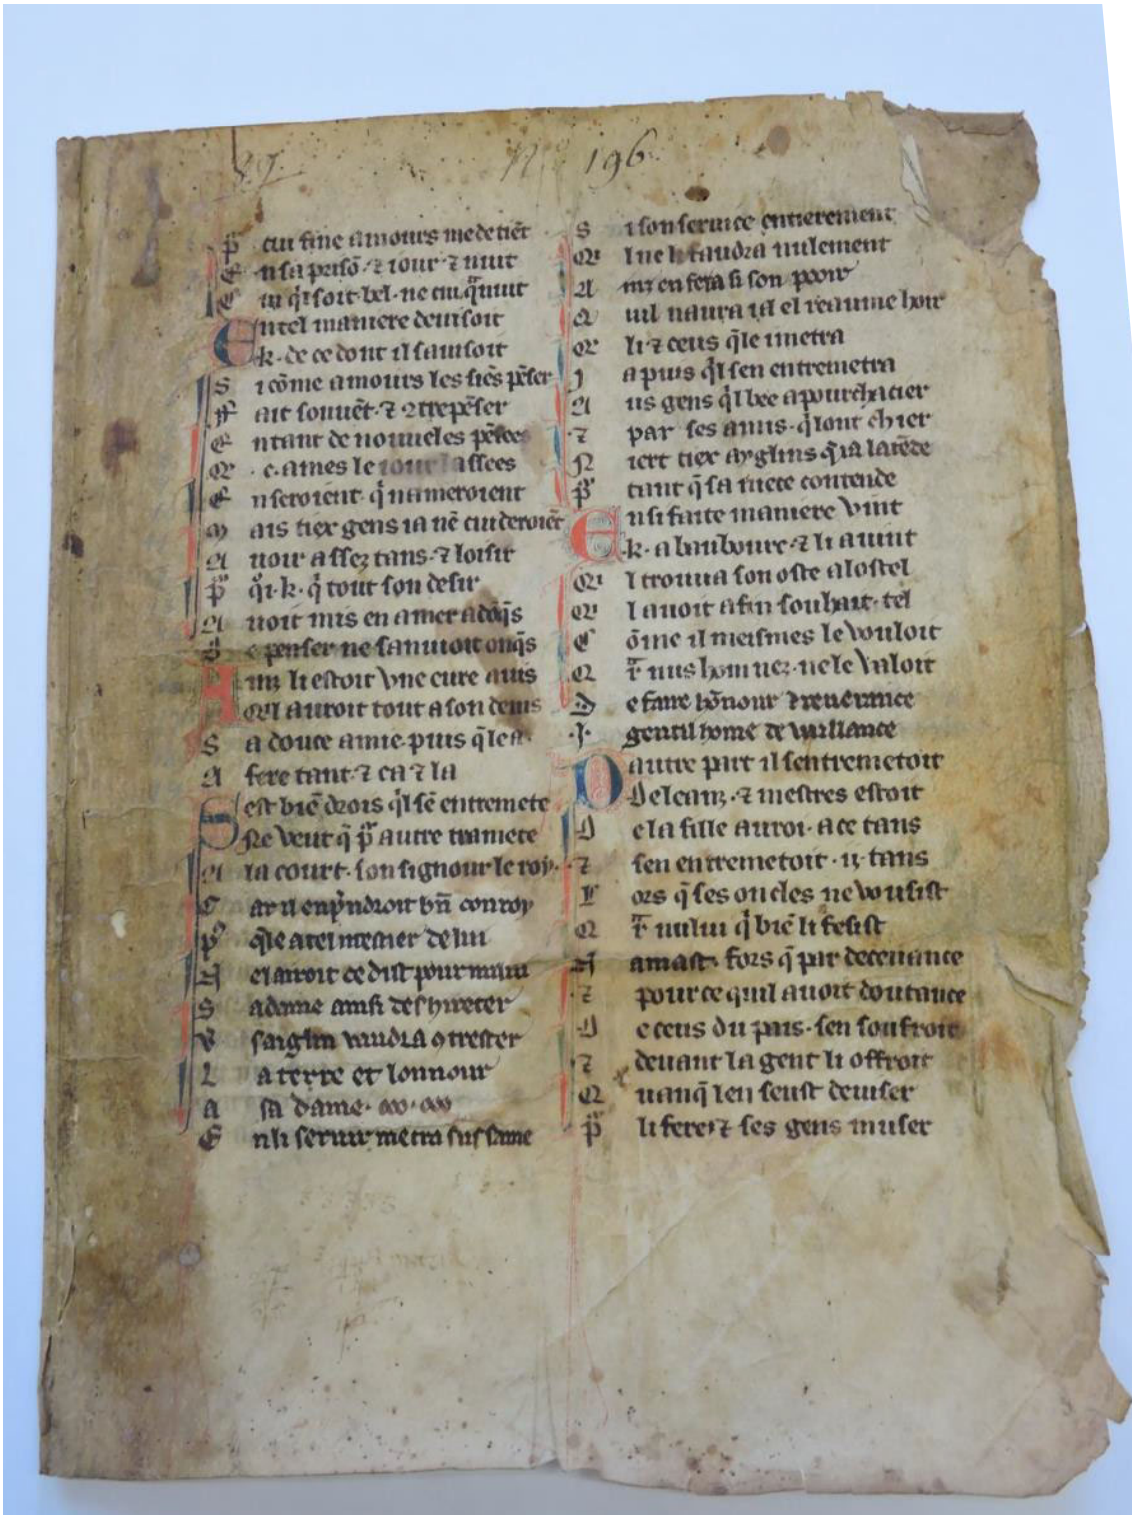 89. N 196.
p̃ cui fine amours me detiẽt
E n sa prisõ ⁊ iour ⁊ nuit
C ui qͥ soit bel ne cui qͥ nuit
E ntel maniere deuisoit
k. de ce dont il sauisoit
S i cõme amours les siẽs pẽser
F ait souuẽt ⁊ ꝯtrepẽser
E ntant de nouueles pẽsees
Q . c. ames le iour lassees
E n seroient qͥ nameroient
M ais tiex gens ia nẽ cuideroiẽt
A uoir assez tans ⁊ loisir
P qͥ k. qͥ tout son desir
A uoit mis en amer adq̃s
e penser ne sanuioit onq̃s
A inz li estoit vne cure auis
Q il auroit tout a son deuis
S a douce amie puis q̃le a
A fere tant ⁊ ca ⁊ la
S est biẽ drois qͥl sẽ entremete
Ne veut q̃ p̃ autre tramete
A la court son signour le roy
C ar il enp̃ndroit bñ conroy
P q̃le a tel mestier de lui
el auroit ce dist pour nului
S a dame ainsi deshireter
V saiglin vaudra ꝯtrester
L a terre et lonnour
A sa dame
E n li seruir metra sus same
S i son seruice entierement
Q l ne li faudra nulement
A inz en fera si son pooir
Q uil naura ia el reaume hoir
Q li ⁊ ceus q̃le i metra
J a puis qͥl sen entremetra
A us gens qͥl bee a pourchacier
⁊ par ses amis qͥ lont chier
N iert tiex ayglins q̃ ia la rẽde
P̃ tant q̃ sa niece contende
E nsi faite maniere vint
k. a banboure ⁊ li auint
Q l trouua son oste a lostel
Q l auoit a fin souhait tel
C õme il meismes le vouloit
Q r̃ nus hom miez ne le valoit
D e faire hõnour ⁊ reuerance
.J. gentil home de vaillance
D autre part il sentremetoit
Deleanz ⁊ mestres estoit
D e la fille au roi a ce tans
⁊ sen entremetoit .ij. tans
L ors q̃ ses oncles ne vousist
Q r̃ nului qͥ biẽ li fesist
N amast fors q̃ par deceuance
⁊ pour ce quil auoit doutance
D e ceus du pais sen soufroit
⁊ deuant la gent li offroit
Q uanq̃ len seust deuiser
P̃ li fere ⁊ ses gens muser